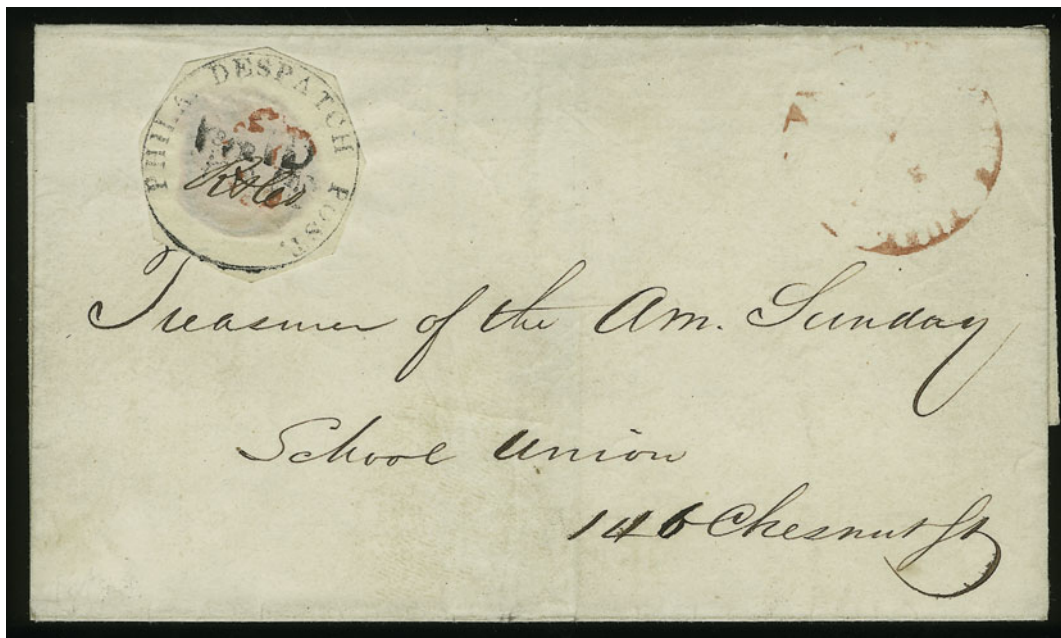 PHILA DESPATCH POST.
R & Co
Treasurer of the Am. Sunday
School Union
146 Chesnut St